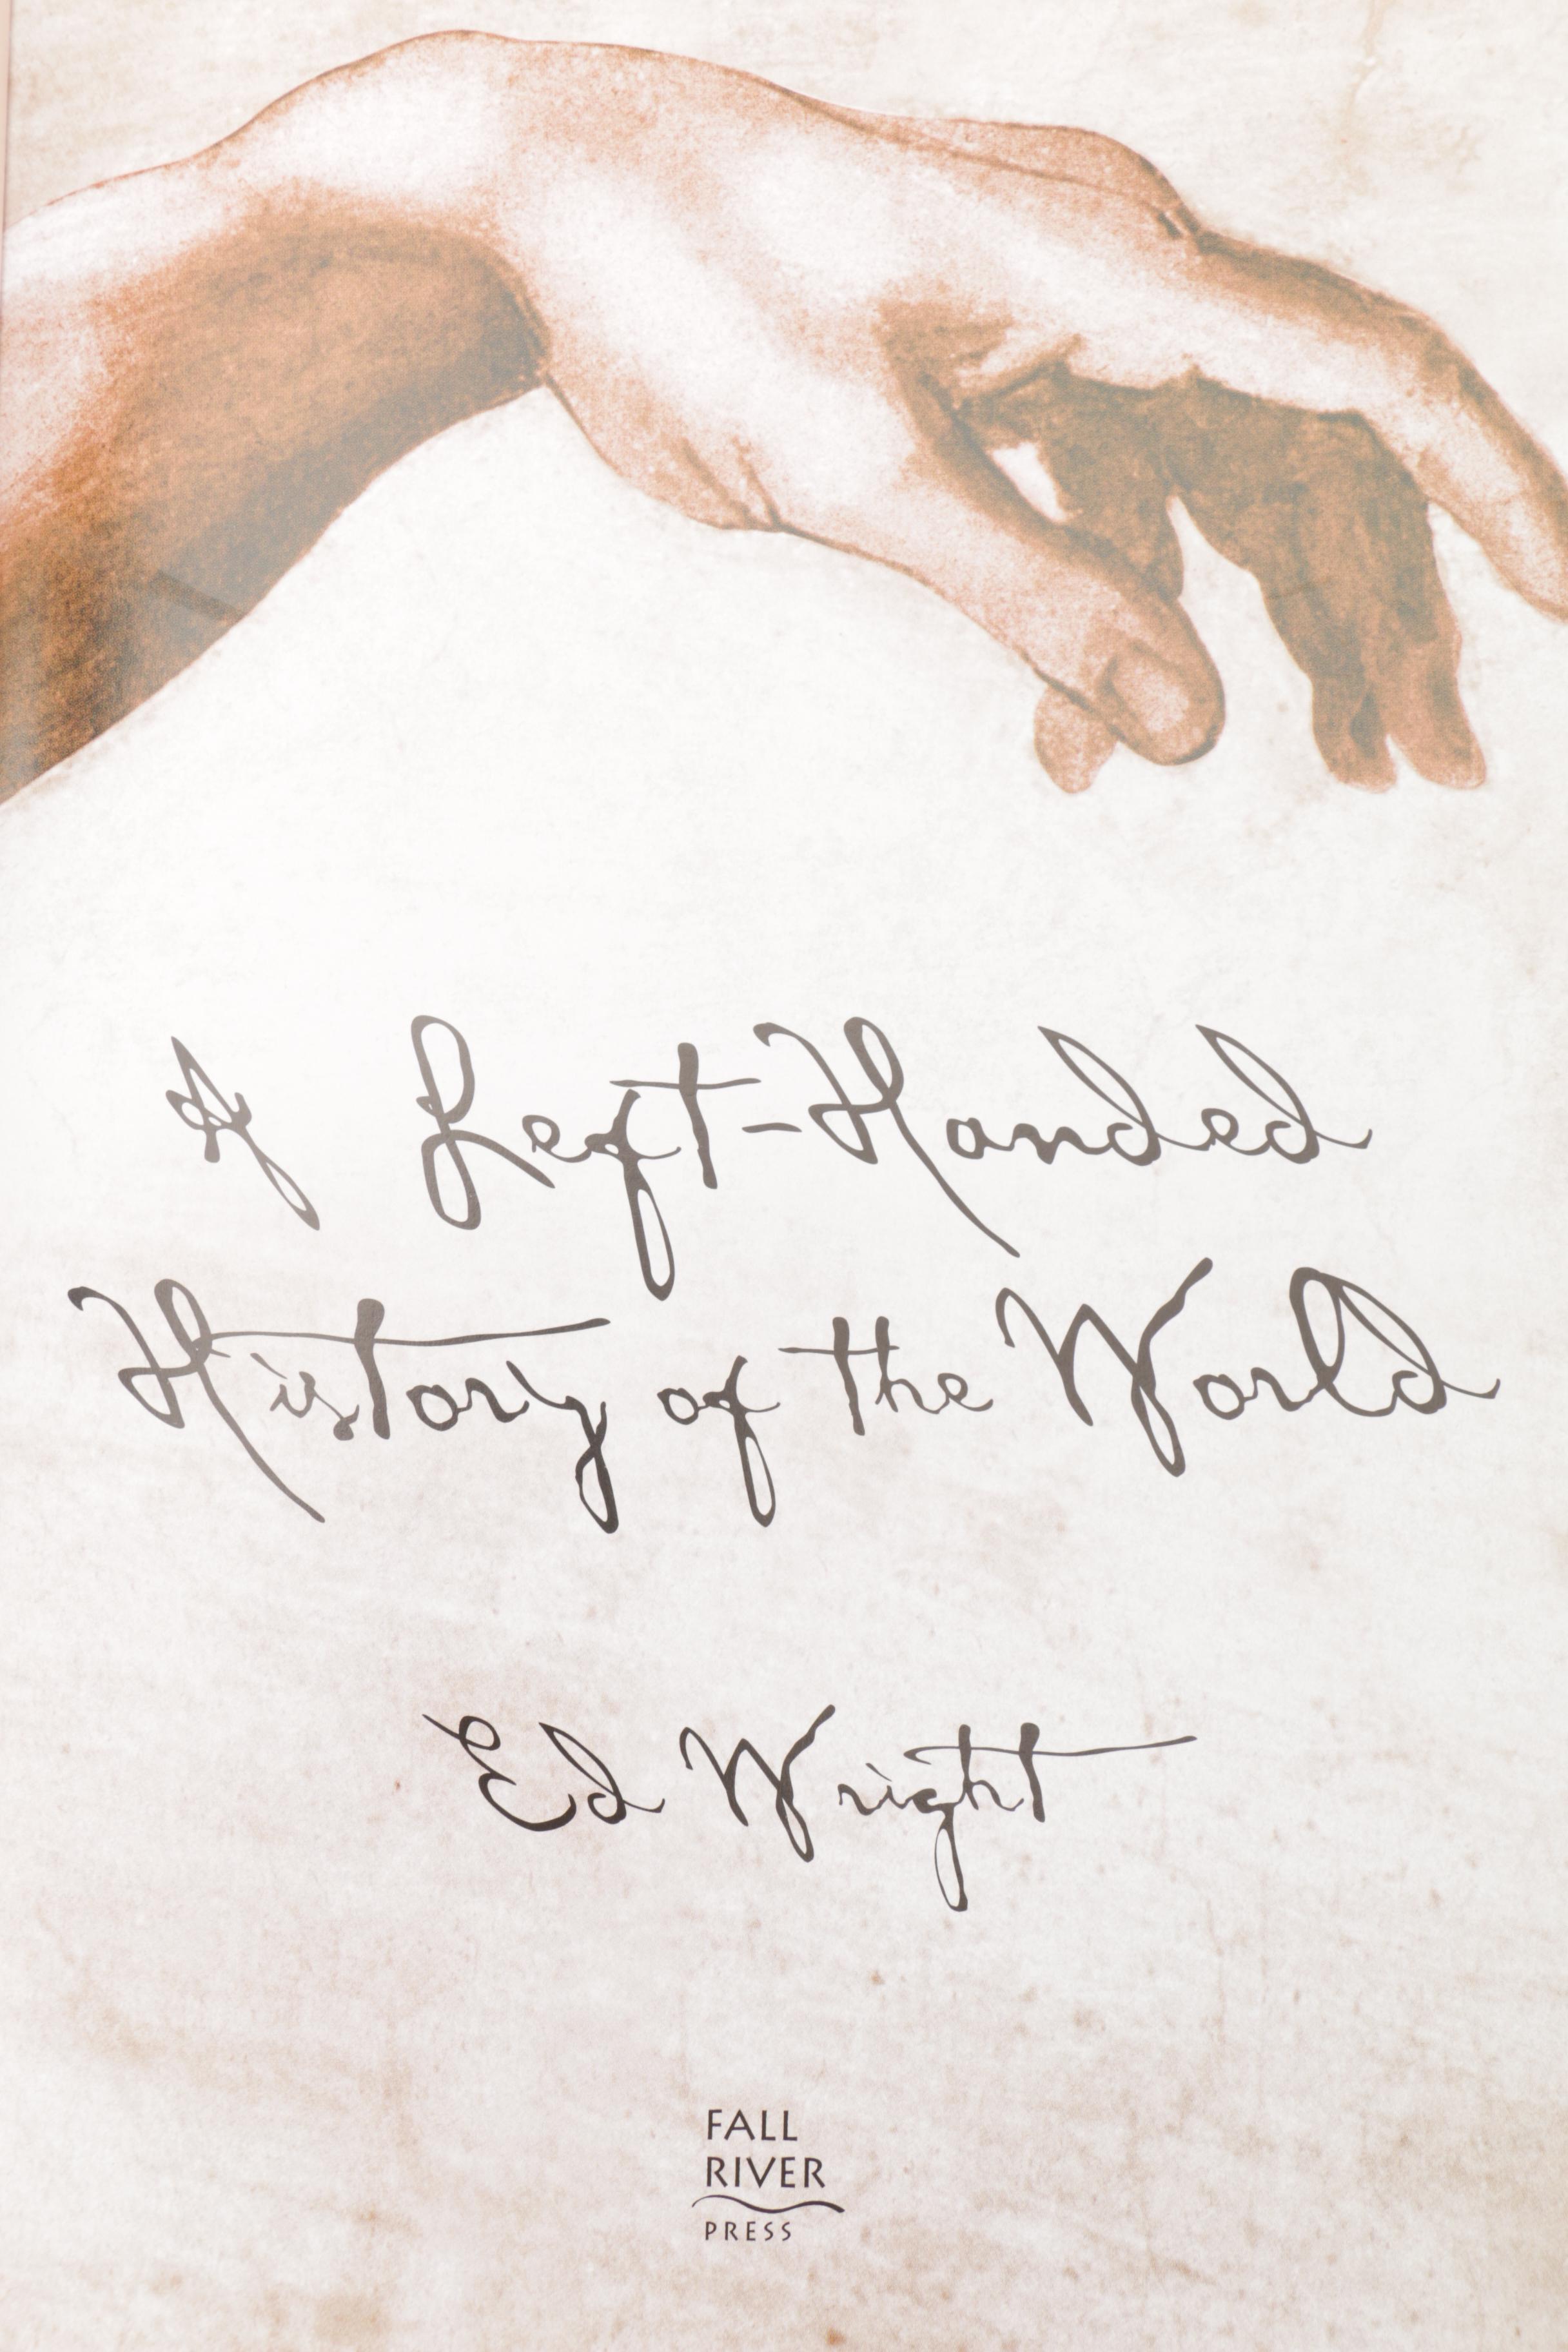 A Left-Handed
History of the World
Ed Wright
FALL
RIVER
PRESS